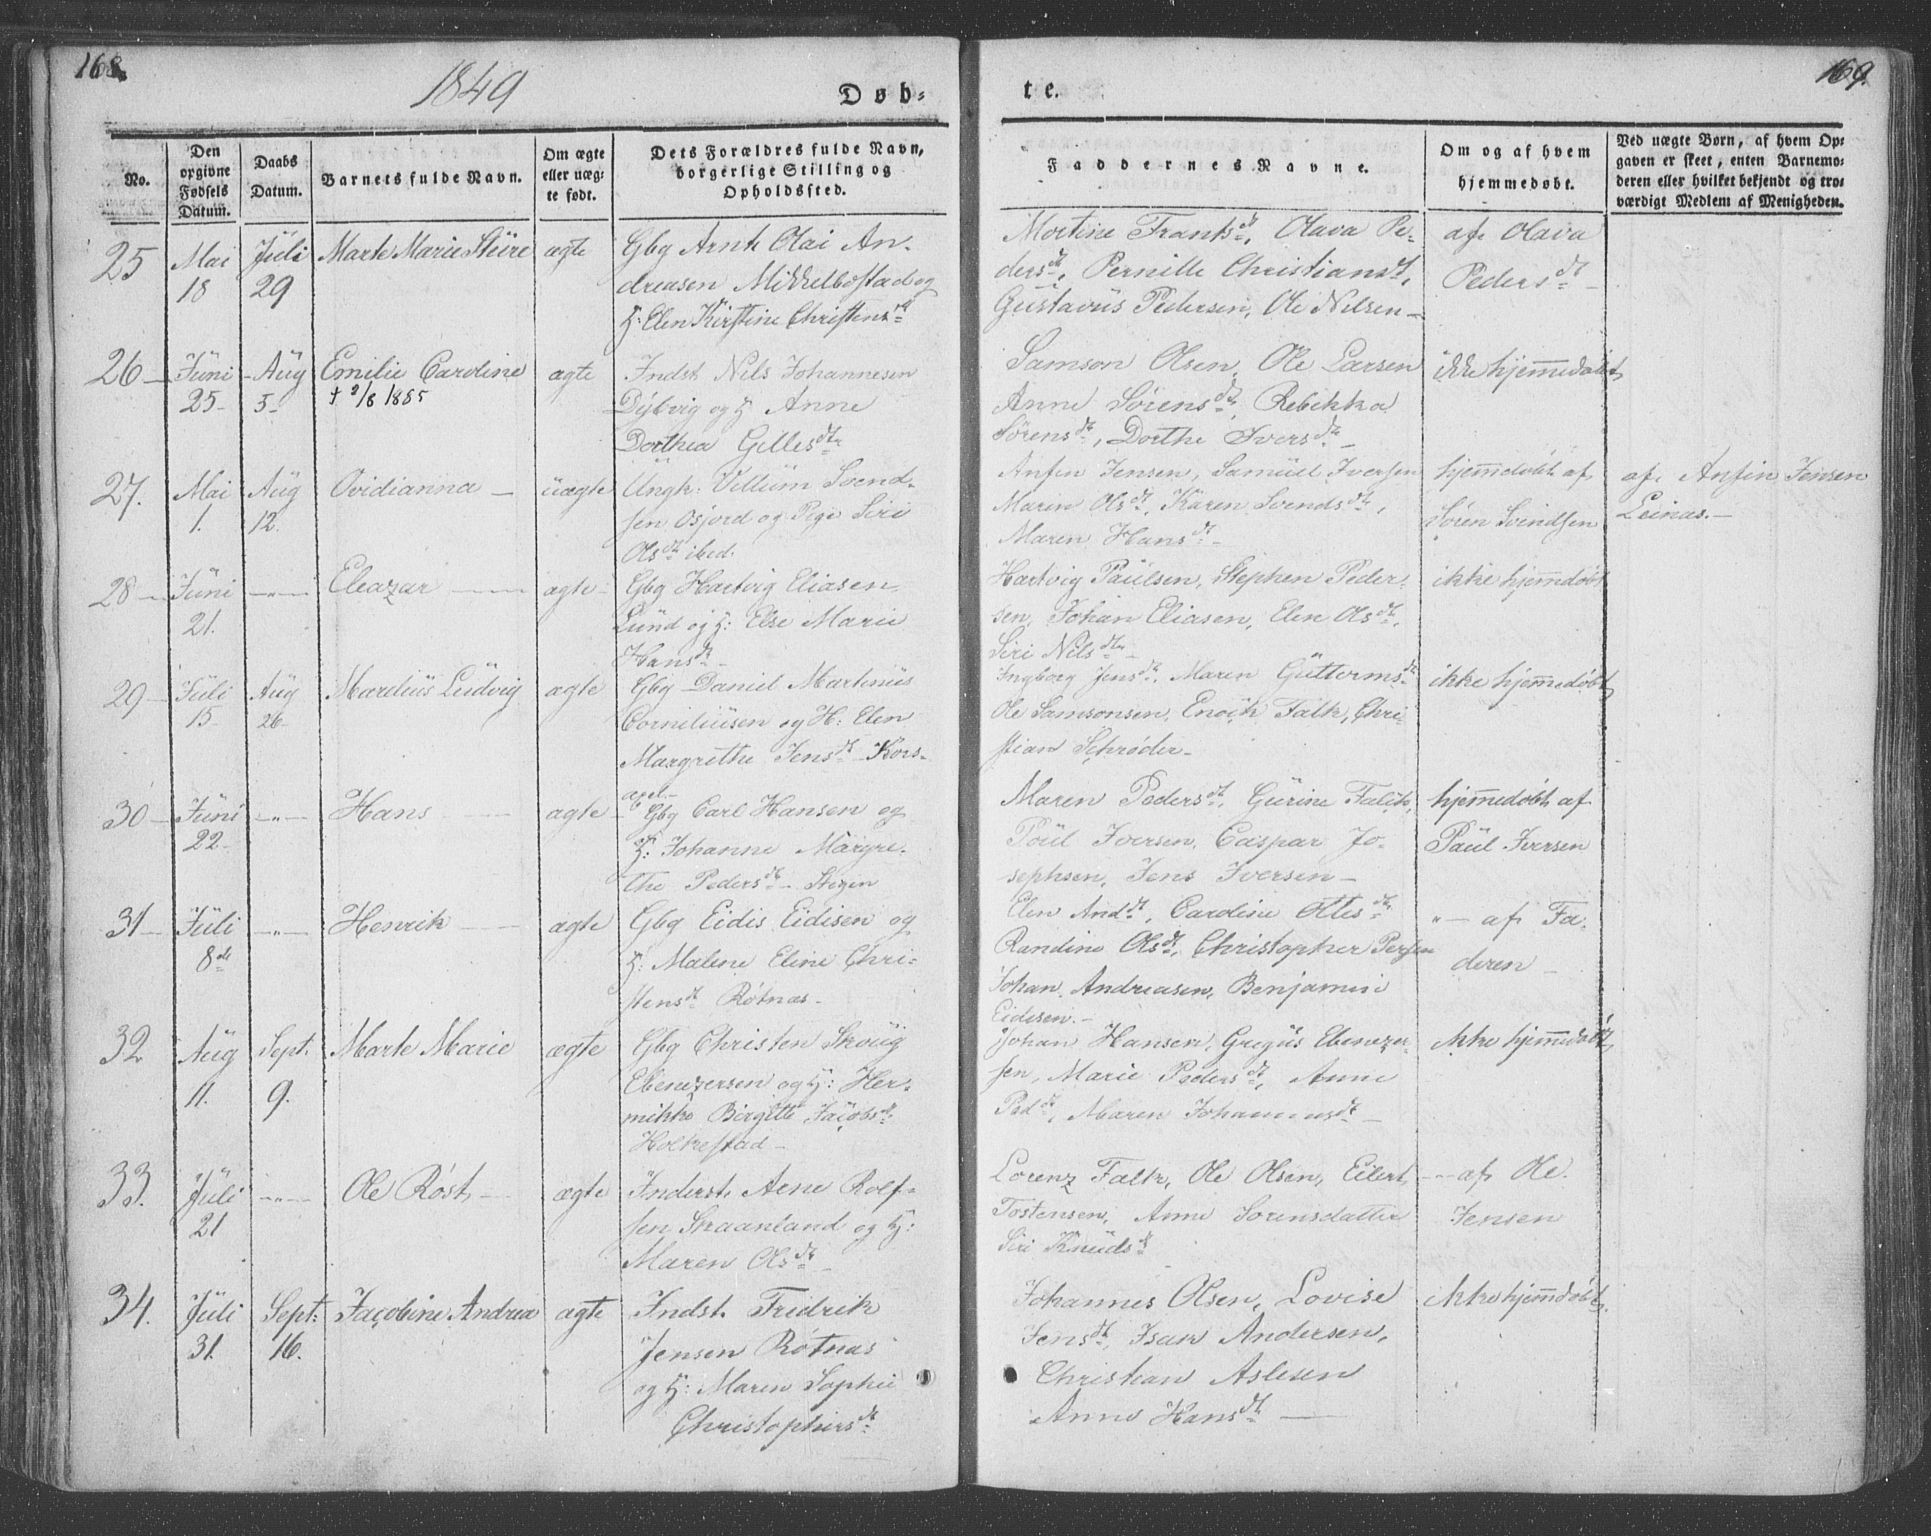 168.
1849
Døb-
te.
169.
No.
Den
orgivne
Fødsels
Datum.
Daabs
Datum.
Barnets fulde Navn.
Om ægte
eller uæg-
te født.
Dets Forældres fulde Navn,
borgerlige Stilling og
Opholdssted.
Faddernes Navne.
Om og af hvem
hjemmedøbt.
Ved uægte Børn, af hvem Op-
gaven er skeet, enten Barnemo-
deren eller hvilket bekjendt og tro-
værdigt Medlem af Menigheden.
25
Mai
18
Juli
29
Marte Marie Stüre
ægte
Gbg Arnt Olai An-
dreasen Mikkelbostad og
H: Elen Kirstine Christensdt
Mortine Frantsdt, Olava Pe-
dersdt, Pernille Christiansdt,
Gustavüs Pedersen, Ole Nilsen
af Olava
Pedersdt
26
Jüni
25
Aüg
5
Emilie Caroline
† 2/8 1885
ægte
Indst. Nils Johannesen
Dÿbvig og H Anne
Dorthea Gillesdtr
Samson Olsen, Ole Larsen
Anne Sørensdtr, Rebikka
Sørensdtr, Dorthe Iversdtr
ikke hjemmedøbt
27.
Mai
1.
Aüg
12.
Ovidianna
üægte
Ungk: Villüm Svend-
sen Osjord og Pige Siri
Olsdtr ibed.
Anfin Jensen, Samüel Iversen
Maren Olsdt, Karen Svendsdt,
Maren Hansdt
hjemmedøbt af
Søren Svindsen
af Anfin Jensen
Leinæs.
28
Jüni
21.
"
Eleazar
ægte
Gbg Hartvig Eliasen
Lünd og H: Else Marie
Hansdtr
Hartvig Paülsen, Stephen Peder-
sen, Johan Eliasen, Elen Olsdt,
Siri Nilsdtr
ikke hjemmedøbt
29
Jüli
15
Aüg
26
Mardiüs Lüdvig
ægte
Gbg Daniel Martinüs
Corneliüsen og H: Elen
Margrethe Jensdt Kors-
Ingborg Jensdt, Maren Güttermsdt
Ole Samsonsen, Enoch Falk, Chri-
stian Schrøder
ikke hjemmedøbt
30
Jüni
22
"
Hans
ægte
Gbg Carl Hansen og
H: Johanne Margre-
the Pedersdt Stegen
Maren Pedersdt, Gürine Falch,
Poül Iversen, Caspar Jo-
sephsen, Jens Iversen
hjemmedøbt af
Paül Iversen
31
Jüli
8de
"
Henrik
ægte
Gbg Eidis Eidisen og
H: Malene Eline Chri-
stensdt Røtnæs
Elen Anddt, Caroline Ottesdtr
Randine Olsdt, Christopher Persen
Johan Andreasen, Benjamin
Eidisen
" af Fa-
deren
32
Aüg
11.
Sept.
9.
Marte Marie
ægte
Gbg Christen Skoüg
Ebenezersen og H: Her-
mikke Birgitte Jacobsdt
Holkestad
Johan Hansen, Gregüs Ebenezer-
sen, Marie Pedersdt, Anne
Peddt, Maren Johannesdt
ikke hjemmedøbt
33.
Jüli
21
"
Ole Røst
ægte
Inderst. Arne Rolf-
sen Skaanland og H:
Maren Olsdt
Lorenz Falk, Ole Olsen, Eilert
Tostensen, Anne Sorensdatter
Siri Knüdsdt
af Ole
Jensen
34.
Jüli
31.
Sept:
16.
Jacobine Andrea
ægte
Indst. Fridrik
Jensen Røtnæs
og H: Maren Sophie
Christophersdt
Johannes Olsen, Lovise
Jensdt, Isak Andersen,
Christian Aslesen
Anne Hansdt
ikke hjemmedøbt